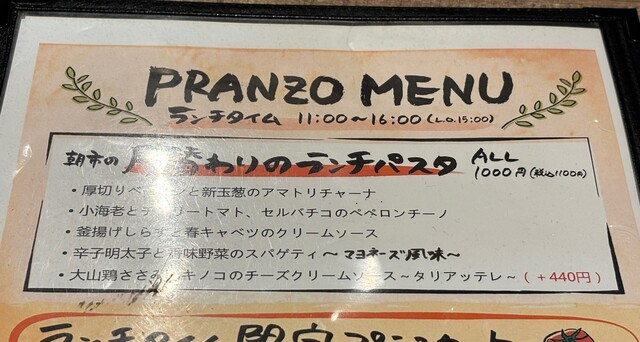 PRANZO MENU
ランチタイム 11:00～16:00 (L.O.15:00)
朝市の 月替わりのランチパスタ ALL
1000円(税込1100円)
・厚切りベーコンと新玉葱のアマトリチャーナ
・小海老とチェリートマト、セルバチコのペペロンチーノ
・釜揚げしらすと春キャベツのクリームソース
・辛子明太子と香味野菜のスパゲティ～マヨネーズ風味～
・大山鶏ささみとキノコのチーズクリームソース～タリアッテレ～(+440円)
ランチタイム限定